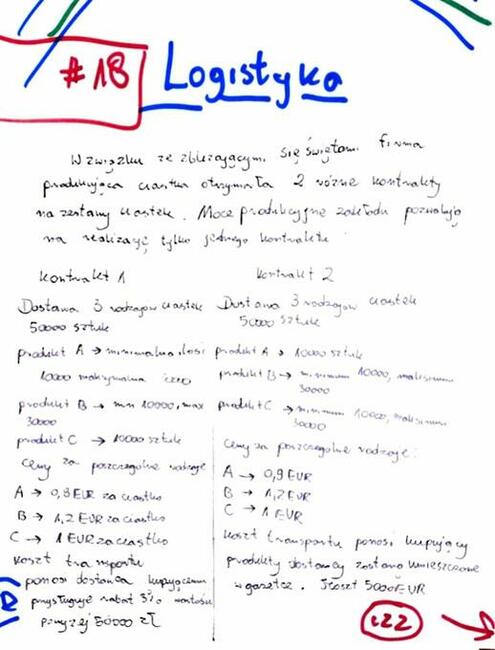 #18 Logistyka
W związku ze zbliżającymi się świętami firma
produkująca ciastka otrzymała 2 różne kontrakty
na zestawy ciastek. Moce produkcyjne zakładu pozwalają
na realizację tylko jednego kontraktu
Kontrakt 1
Dostawa 3 rodzajów ciastek
50000 sztuk
produkt A → minimalna ilość
10000 maksymalna
produkt B → min 10000, max
30000
produkt C → 10000 sztuk
Ceny za poszczególne rodzaje
A → 0,8 EUR za ciastko
B → 1,2 EUR za ciastko
C → 1 EUR za ciastko
Koszt transportu
ponosi dostawca kupującemu
przysługuje rabat 3% wartości
powyżej 50000 zł
Kontrakt 2
Dostawa 3 rodzajów ciastek
50000 sztuk
produkt A → 10000 sztuk
produkt B → minimum 10000, maksimum
30000
produkt C → minimum 10000, maksimum
30000
Ceny za poszczególne rodzaje:
A → 0,9 EUR
B → 1,2 EUR
C → 1 EUR
Koszt transportu ponosi kupujący
produkty dostawcy zostaną umieszczone
w gazetce. Koszt 5000 EUR